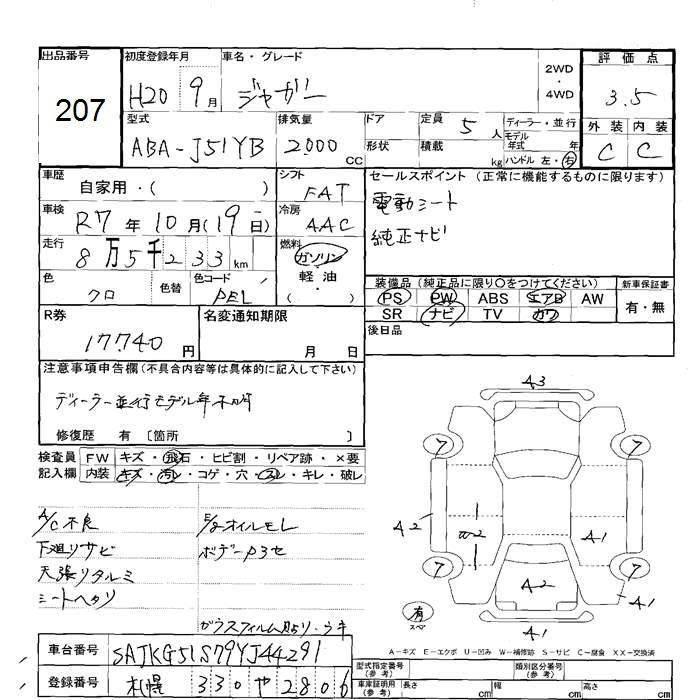 出品番号 初度登録年月 車名・グレード 2WD・4WD 評価点
207 H20 9月 ジャガー 3.5
型式 排気量 ドア 定員 5人 ディーラー・並行 外装 内装
ABA-J51YB 2000CC 形状 積載 kg モデル年式 年 C C
ハンドル 左・右
車歴 シフト セールスポイント (正常に機能するものに限ります)
自家用・( ) FAT 電動シート
車検 R7年10月(19日) 冷房 AAC 純正ナビ
走行 8万5千233km 燃料 ガソリン
色 クロ 色替 色コード PEL 軽油 ・ ( )
装備品 (純正品に限り○をつけてください) 新車保証書
PS PW ABS エアB AW 有・無
SR ナビ TV カワ
R券 17,740円 名変通知期限 月 日 後日品
注意事項申告欄 (不具合内容等は具体的に記入して下さい)
ディーラー並行モデル年不明
修復歴 有 〔箇所 〕
検査員 FW キズ・飛石・ヒビ割・リペア跡・×要
記入欄 内装 キズ・汚レ・コゲ・穴・スレ・キレ・破レ
A/C不良 E/gオイルモレ
下廻リサビ ボデーP3セ
天張リタルミ
シートヘタリ
ガラスフィルム貼り・ウキ
A3
7 7
A2 A1
7 7
A2 A1
有 スペア A1
A-キズ E-エクボ U-凹み W-補修跡 S-サビ C-腐食 XX-交換済
車台番号 SAJKG51S79YJ44291 型式指定番号 (参考) 類別区分番号 (参考)
登録番号 札幌 330 や 2806 車庫証明用 (参考) 長さ cm 幅 cm 高さ cm